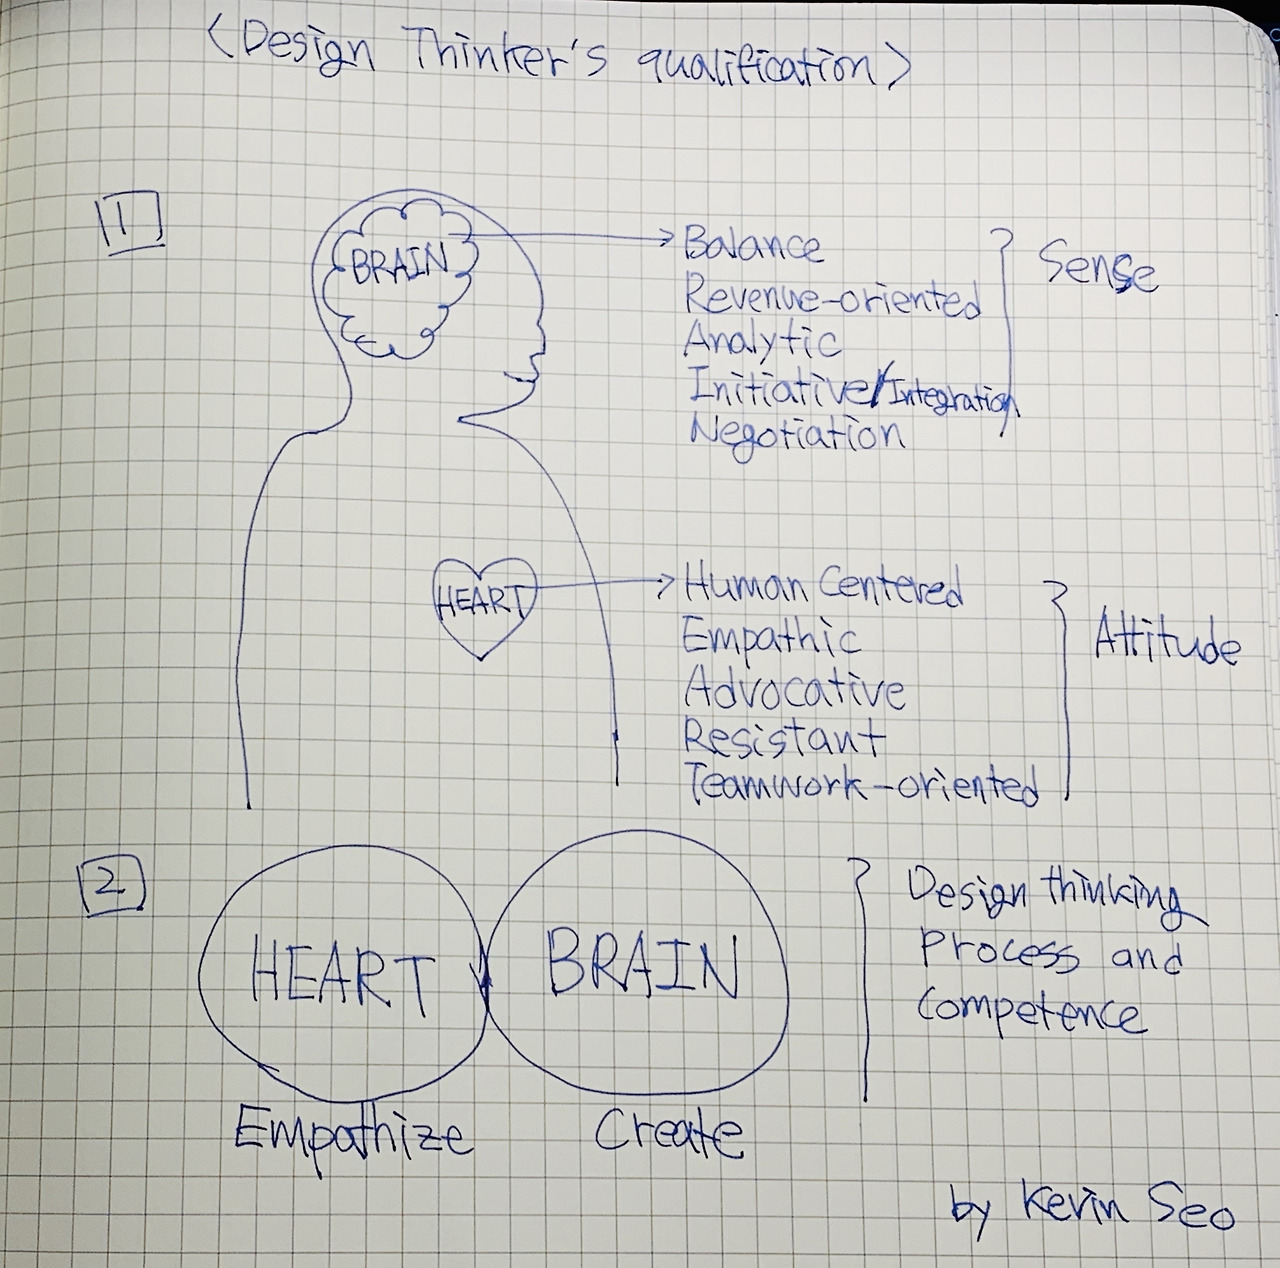 <Design Thinker's qualification>
1
BRAIN
Balance
Revenue-oriented
Analytic
Initiative/Integration
Negotiation
Sense
HEART
Human Centered
Empathic
Advocative
Resistant
Teamwork-oriented
Attitude
2
HEART
BRAIN
Empathize
Create
Design thinking
Process and
Competence
by Kevin Seo